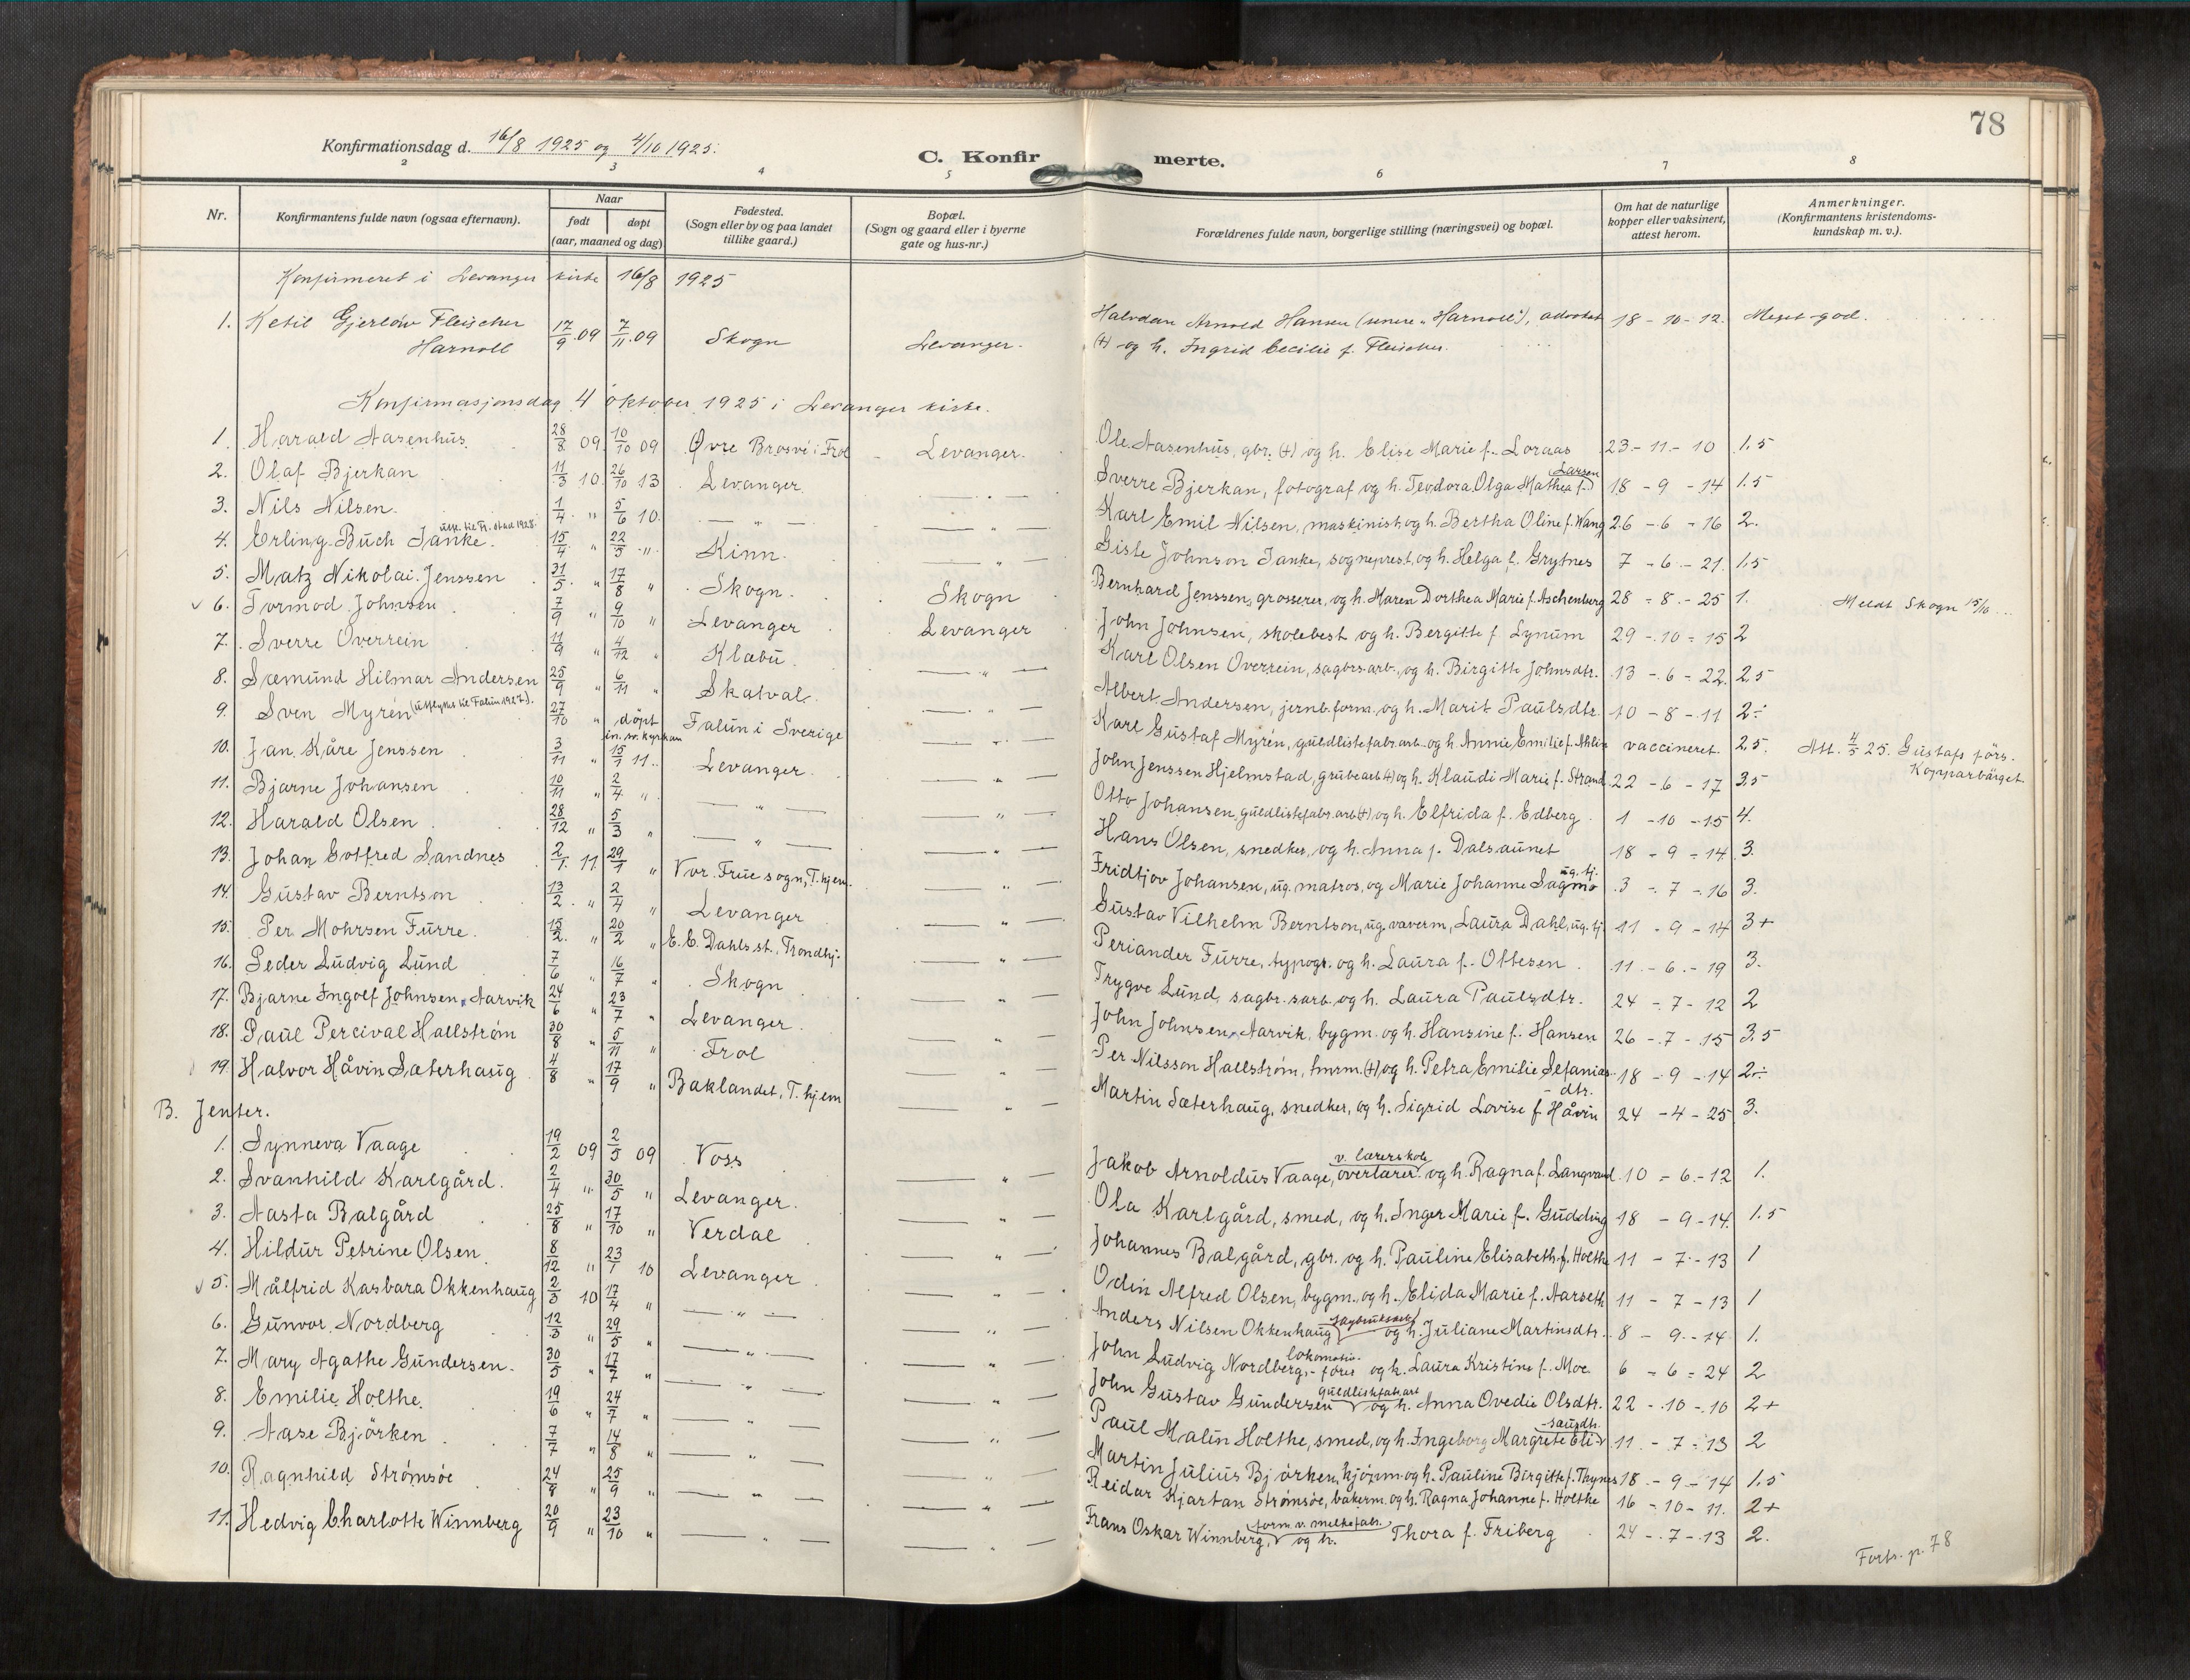 78
Konfirmationsdag d. 16/8 1925 og 4/10 1925.
C. Konfirmerte.
2 3 4 5 6 7 8
Nr.
Konfirmantens fulde navn (ogsaa efternavn).
Naar
født
døpt
(aar, maaned og dag)
Fødested.
(Sogn eller by og paa landet
tillike gaard.)
Bopæl.
(Sogn og gaard eller i byerne
gate og hus-nr.)
Forældrenes fulde navn, borgerlige stilling (næringsvei) og bopæl.
Om hat de naturlige
kopper eller vaksinert,
attest herom.
Anmerkninger.
(Konfirmantens kristendoms-
kundskap m. v.).
Konfirmeret i Levanger kirke 16/8 1925
1. Ketil Gjerløw Fleischer 17/9 09 7/11 09 Skogn Levanger. Halvdan Arnold Hansen (senere "Harnoll"), advokat 18-10-12. Meget god.
Harnoll (+) og h. Ingrid Cecilie f. Fleischer.
Konfirmasjonsdag 4 oktober 1925 i Levanger kirke.
1. Harald Aasenhus 28/8 09 10/10 09 Øvre Brosve i Frol Levanger. Ole Aasenhus, gbr. (+) og h. Elise Marie f. Loraas 23-11-10 1.5
2. Olaf Bjerkan 11/3 10 26/10 13 Levanger — " — Sverre Bjerkan, fotograf og h. Teodora Olga Mathea f. Larsen 18-9-14 1.5
3. Nils Nilsen 1/4 " 5/6 10 — " — — " — Karl Emil Nilsen, maskinist og h. Bertha Oline f. Wang 26-6-16 2.
4. Erling Buch Janke. utfl. til Fr.stad 1928. 15/4 " 22/5 " Kinn. — " — Giste Johnson Janke, sogneprest, og h. Helga f. Grytnes 7-6-21. 1.5
5. Matz Nikolai Jenssen 31/5 " 17/8 " Skogn. Skogn Bernhard Jenssen, grosserer, og h. Maren Dorthea Marie f. Aschenberg 28-8-25 1. Meldt Skogn 15/10
6. Tormod Johnsen 7/9 " 9/10 " Levanger Levanger John Johnsen, skolebest og h. Bergitte f. Lynum 29-10-15 2
7. Sverre Overrein 11/9 " 4/12 " Klæbu. — " — Karl Olsen Overrein, sagbr.arb., og h. Birgitte Johnsdtr. 13-6-22. 2.5
8. Sæmund Hilmar Andersen 25/9 " 6/11 " Skatval. — " — Albert Andersen, jernb.form. og h. Marit Paulsdtr. 10-8-11 2÷
9. Sven Myrén (utflyttet til Falun 1927). 27/10 " döpt in. sv. kyrkan Falun i Sverige — " — Karl Gustaf Myrén, guldlistefabr.arb. og h. Annie Emilie f. Ahlin vaccineret. 2.5. Att. 4/5 25. Gustafs förs.
Kopparbärget.
10. Jan Kåre Jenssen 3/11 " 15/1 11. Levanger. — " — John Jenssen Hjelmstad, grubearb (+) og h. Klaudi Marie f. Strand 22-6-17 3.5
11. Bjarne Johansen 10/11 " 2/4 " — " — — " — Otto Johansen, guldlistefabr.arb (+) og h. Elfrida f. Edberg 1-10-15 4.
12. Harald Olsen 28/12 " 5/3 " — " — — " — Hans Olsen, snedker, og h. Anna f. Dalsaunet 18-9-14. 3.
13. Johan Gotfred Sandnes 2/1 11 29/1 " Vor Frue sogn, T.hjem. — " — Fridtjov Johansen, ug. matros, og Marie Johanne Sagmo ug. tj. 3-7-16 3.
14. Gustav Berntson 13/2 " 2/4 " Levanger — " — Gustav Vilhelm Berntson, ug. vaverm, Laura Dahl, ug. tj. 11-9-14 3+
15. Per Mohrsen Furre. 15/2 " 20/2 " E. C. Dahls st., Trondhj. — " — Periander Furre, typogr. og h. Laura f. Ottesen 11-6-19 3.
16. Peder Ludvig Lund 7/6 " 16/7 " Skogn — " — Trygve Lund, sagbr.arb. og h. Laura Paulsdtr. 24-7-12 2
17. Bjarne Ingolf Johnsen Aarvik 24/6 " 23/7 " Levanger. — " — John Johnsen Aarvik, bygm. og h. Hansine f. Hansen 26-7-15 3.5
18. Paul Percival Hallström 30/8 " 5/11 " Frol — " — Per Nilsson Hallström, tmrm. (+) og h. Petra Emilie Sefanias-dtr. 18-9-14 2÷
19. Halvor Håvin Sæterhaug 4/8 " 17/9 " Baklandet, T.hjem — " — Martin Sæterhaug, snedker, og h. Sigrid Lovise f. Håvin 24-4-25 3.
B. Jenter.
1. Synneva Vaage 19/2 09 2/5 09 Voss — " — Jakob Arnoldus Vaage, overlærer v. lærerskole og h. Ragna f. Langvand 10-6-12 1.
2. Svanhild Karlgård. 2/4 " 30/5 " Levanger. — " — Ola Karlgård, smed, og h. Inger Marie f. Gudding 18-9-14. 1.5
3. Aasta Balgård 25/8 " 17/10 " Verdal — " — Johannes Balgård, gbr. og h. Pauline Elisabeth f. Holthe 11-7-13 1
4. Hildur Petrine Olsen 8/12 " 23/1 10 Levanger — " — Odin Alfred Olsen, bygm. og h. Elida Marie f. Aarseth 11-7-13 1
5. Målfrid Kasbara Okkenhaug 2/3 10 17/4 " — " — — " — Anders Nilsen Okkenhaug sagbruksarb. og h. Juliane Martinsdtr. 8-9-14. 1.
6. Gunvor Nordberg 12/3 " 29/5 " — " — — " — John Ludvig Nordberg, lokomotiv-fører og h. Laura Kristine f. Moe 6-6-24 2
7. Mary Agathe Gundersen. 30/5 " 17/7 " — " — — " — John Gustav Gundersen guldlistefab.arb og h. Anna Ovedie Olsdtr. 22-10-10 2+
8. Emilie Holthe. 19/6 " 24/7 " — " — — " — Paul Malin Holthe, smed, og h. Ingeborg Margrete Eli-sausdtr. 11-7-13 2
9. Aase Björken 7/7 " 14/8 " — " — — " — Martin Julius Björken, kjörm. og h. Pauline Birgitte f. Thynes 18-9-14 1.5
10. Ragnhild Strømsøe 24/8 " 25/9 " — " — — " — Reidar Kjartan Strømsøe, bakerm. og h. Ragna Johanne f. Holthe 16-10-11. 2+
11. Hedvig Charlotte Winnberg 20/9 " 23/10 " — " — — " — Frans Oskar Winnberg, form. v. melkefabr. og h. Thora f. Friberg 24-7-13 2.
Forts. p. 78